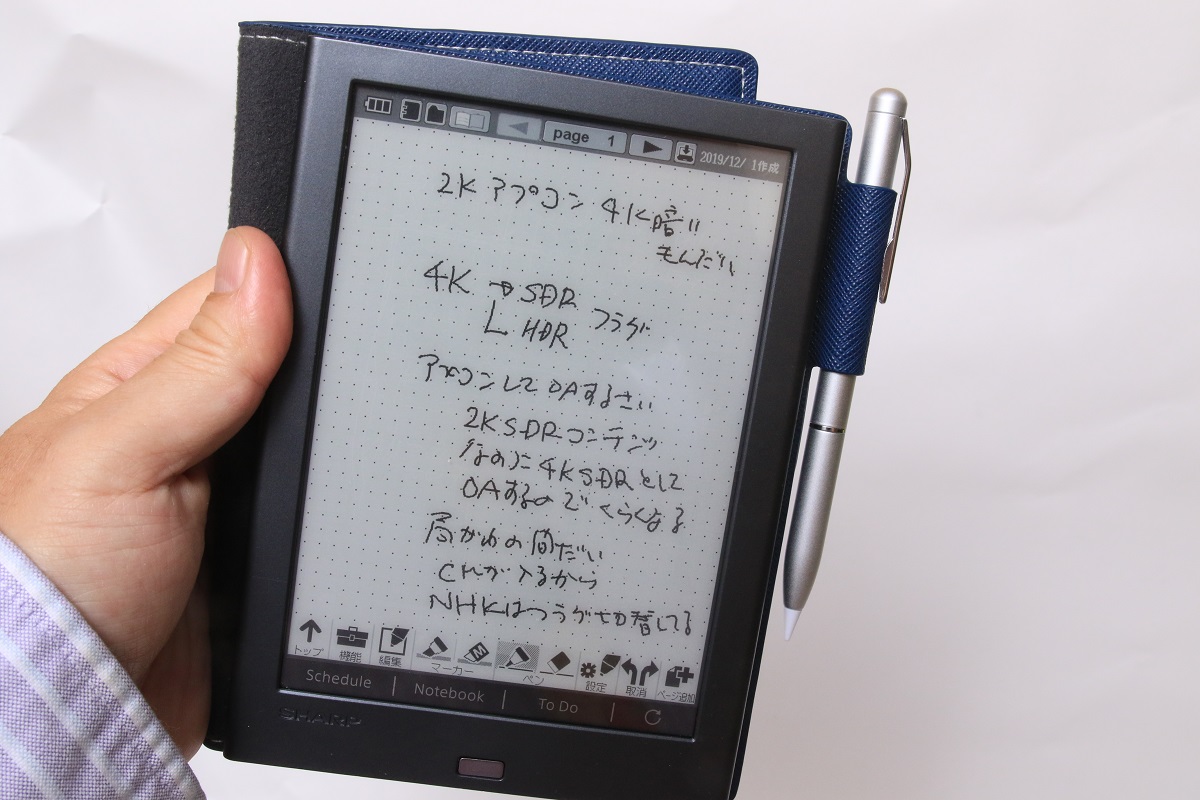 page 1
2019/12/ 1作成
2K アプコン 4K暗い
もんだい
4K → SDR フラグ
L HDR
アプコンして OAするさい
2K SDR コンテンツ
なのに 4K SDR として
OAするので くらくなる
局がわの問だい
CMが入るから
NHKはフラグせ 着してる
トップ
機能
編集
マーカー
ペン
設定
取消
ページ追加
Schedule
Notebook
To Do
SHARP